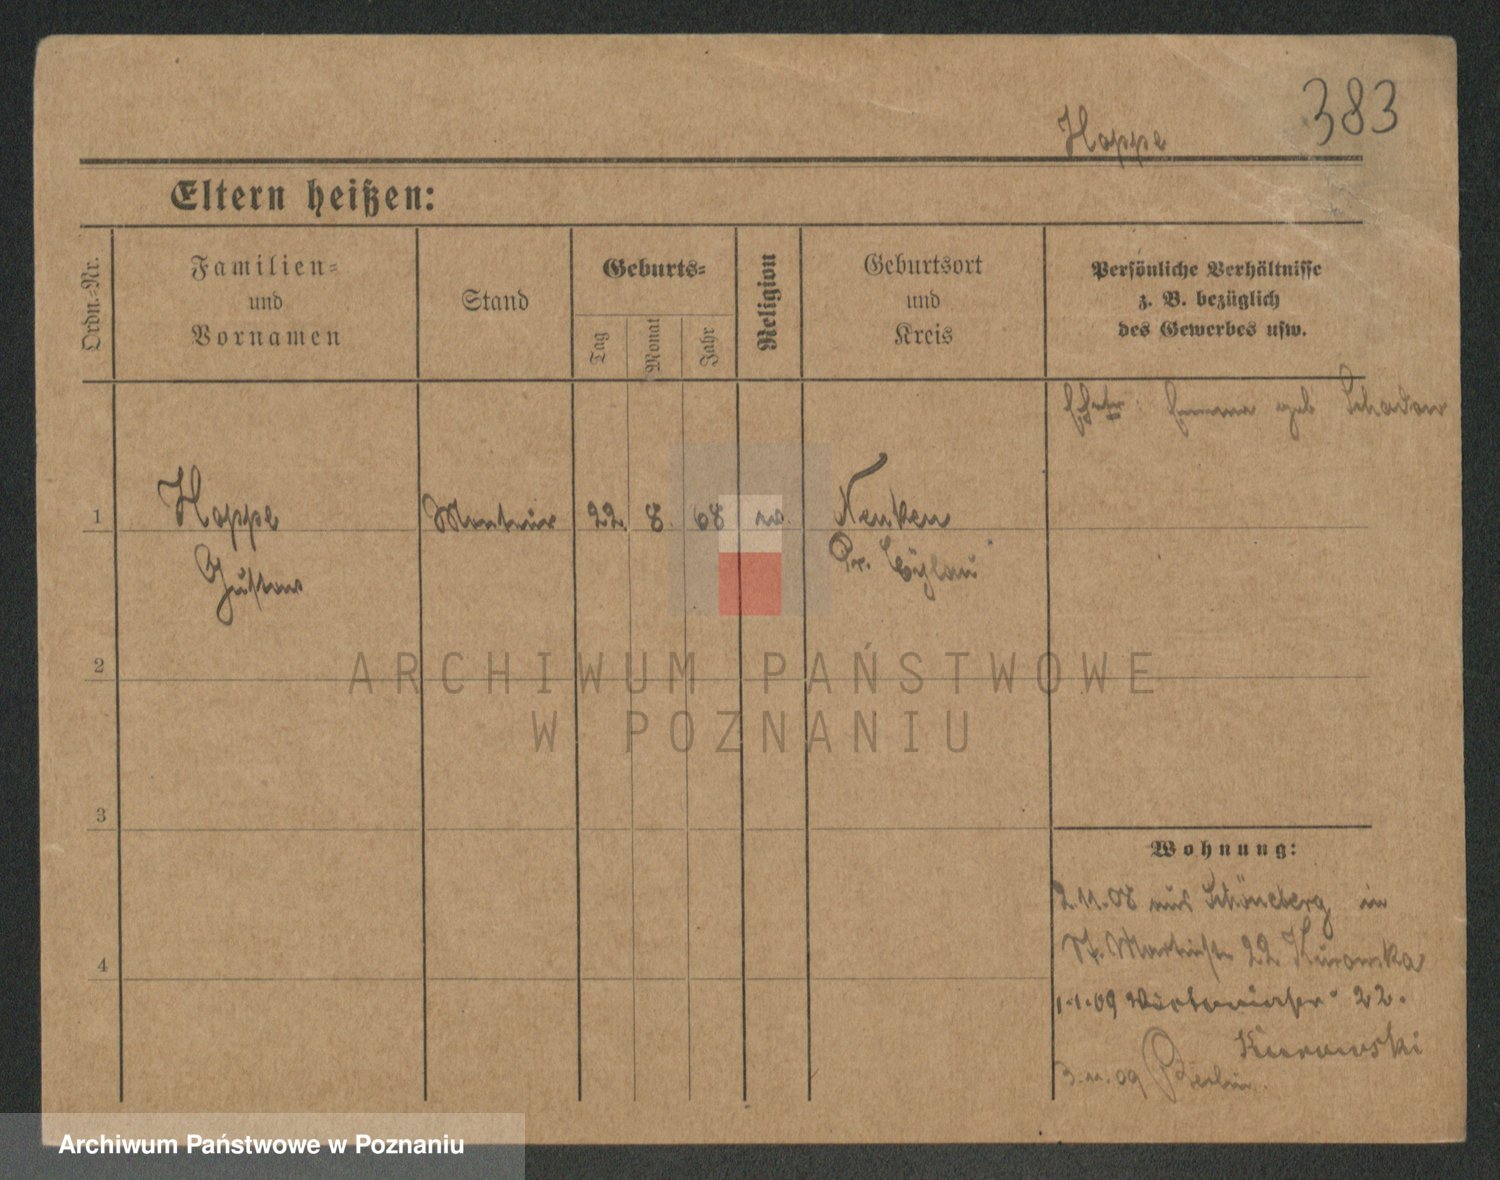 383
Hoppe
Eltern heißen:
Ordn.-Nr.
Familien-
und
Vornamen
Stand
Geburts-
Tag
Monat
Jahr
Religion
Geburtsort
und
Kreis
Persönliche Verhältnisse
z. B. bezüglich
des Gewerbes usw.
Emma geb Schadow
1
Hoppe
Gustav
Monteur
22.
8.
68
Kenken
Pr. Eylau
2
ARCHIWUM PAŃSTWOWE
W POZNANIU
3
Wohnung:
2.11.08 aus Schöneberg in
St. Martinstr 22
4
1.1.09 22.
Kurowski
3.11.09 Berlin.
Archiwum Państwowe w Poznaniu